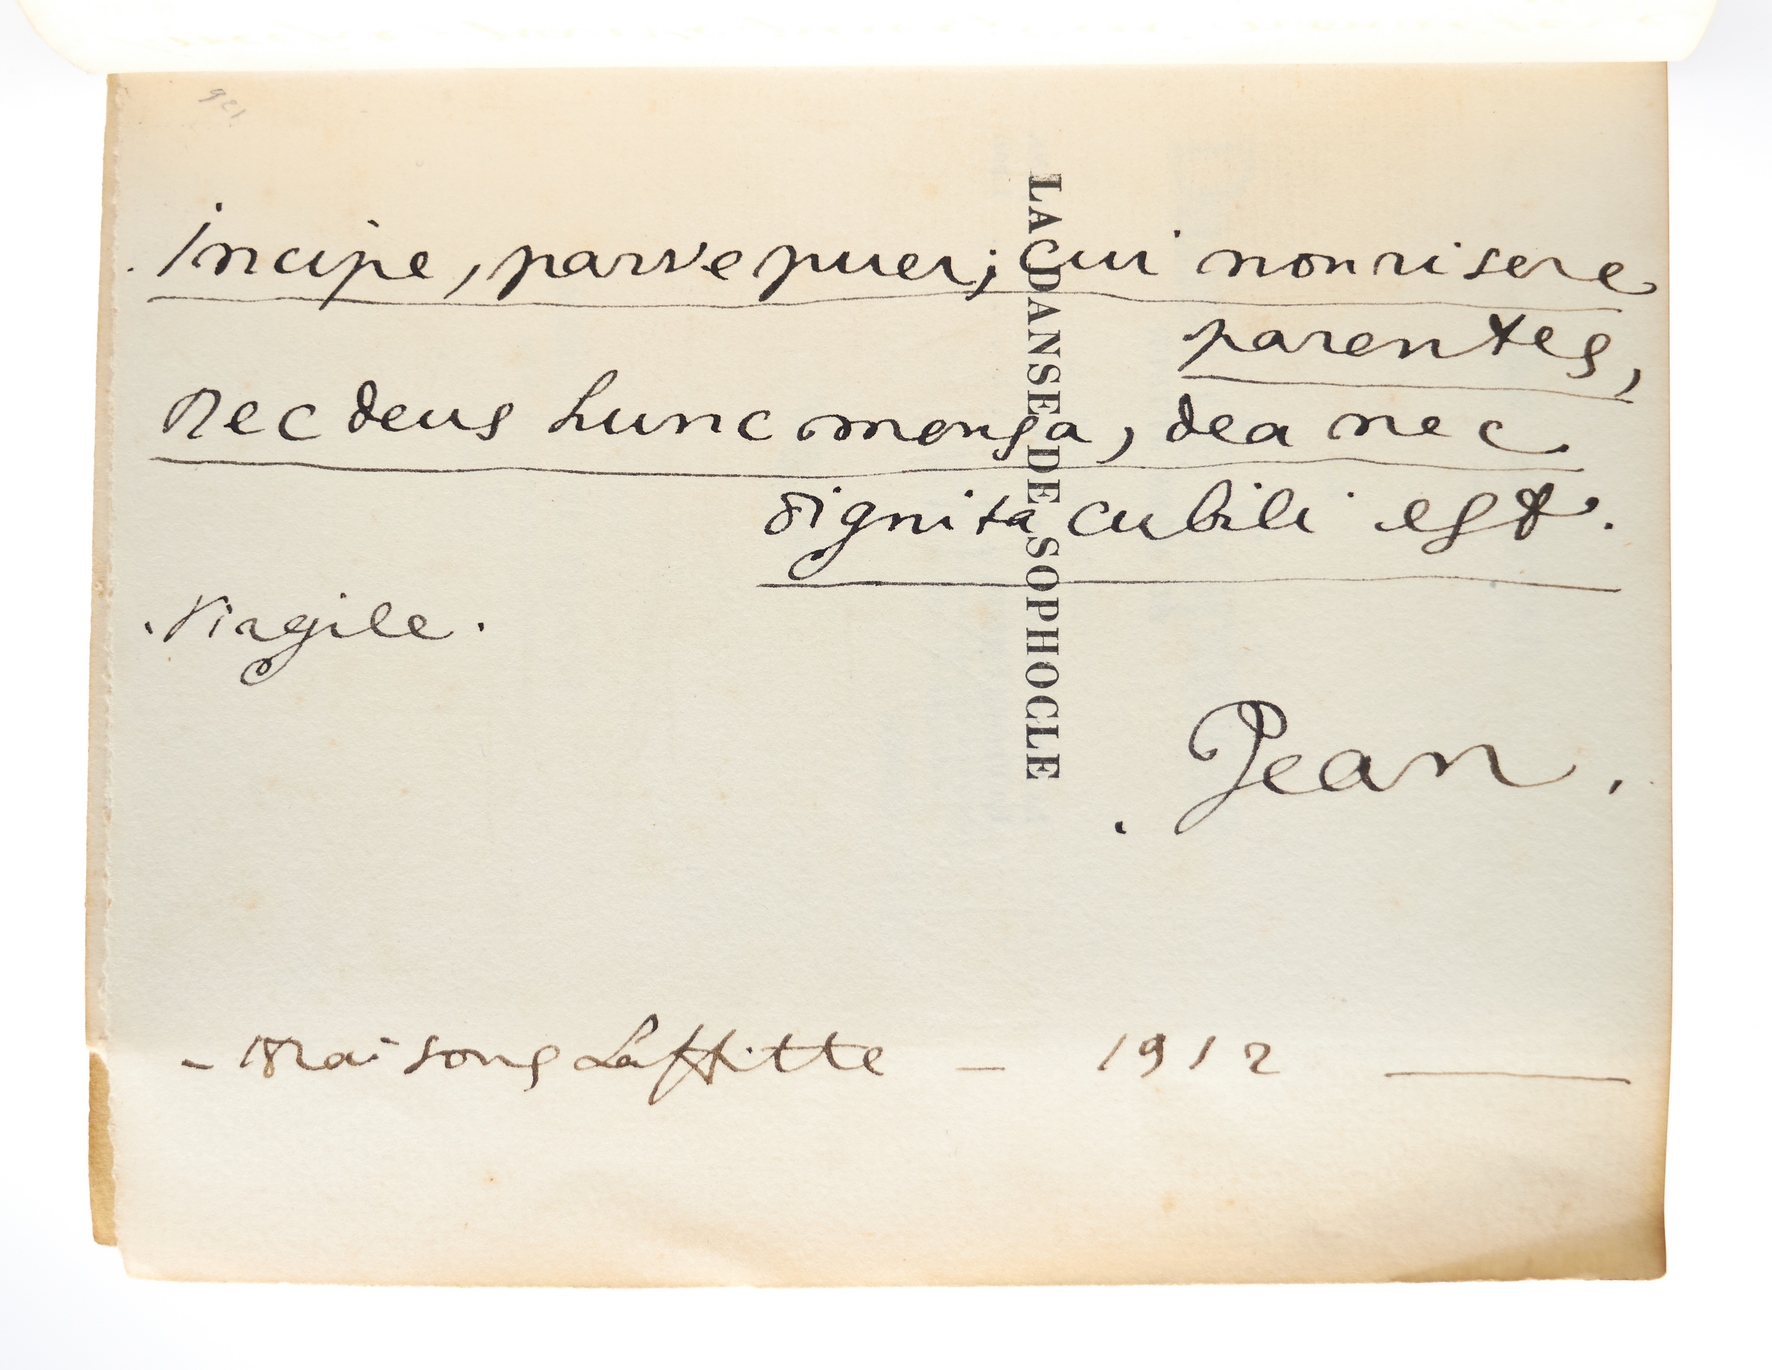 Incipe, parve puer; cui non risere
parentes,
Nec deus hunc mensa, dea nec
dignita cubili est.
. Virgile.
Jean.
- Maisons Laffitte - 1912 —
LA DANSE DE SOPHOCLE